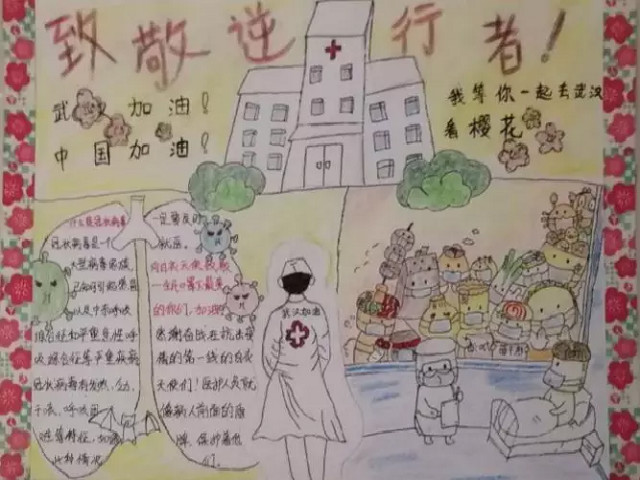 致敬逆行者！
武汉加油！
中国加油！
我等你一起去武汉
看樱花
什么是冠状病毒
冠状病毒是一个
大型病毒家族，
已知可引起感冒
以及中东呼吸
综合征和严重急性呼
吸综合征等严重疾病
冠状病毒有发热、
干咳、呼吸困
难等特征，如遇
此种情况
一定要及时
就医。
向白衣天使致敬
一线的
的你们，加油
感谢奋战在抗击疫
情的第一线的白衣
天使们！医护人员就
像病人前面的盾
牌，保护着他
们。
武汉加油